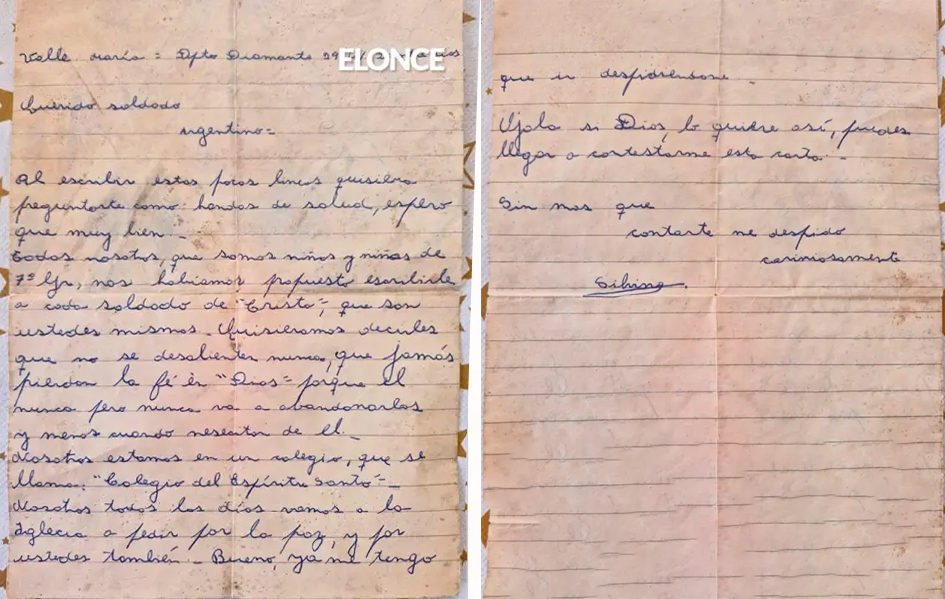 Valle María = Dpto Diamante
ELONCE
Querido soldado
argentino=
Al escribir estas pocas lineas quisiera
preguntarte como: handas de salud, espero
que muy bien _
Todos nosotros, que somos niños y niñas de
7º Gr, nos habiamos propuesto escribirle
a cada soldado de "Cristo", que son
ustedes mismos. Quisieramos decirles
que no se desalienten nunca, que jamás
pierdan la fé en "Dios" = porque el
nunca pero nunca va a abandonarlos
y menos cuando nesecitan de El._
Nosotros estamos en un colegio, que se
llama: "Colegio del Espíritu Santo" =_
Nosotros todos los días vamos a la
Iglecia a pedir por la paz, y por
ustedes también _ Bueno, ya me tengo
que ir despidiendome _
Ojala si Dios lo quiere así, puedas
llegar a contestarme esta carta _
Sin mas que
contarte me despido
cariñosamente
Silvina.